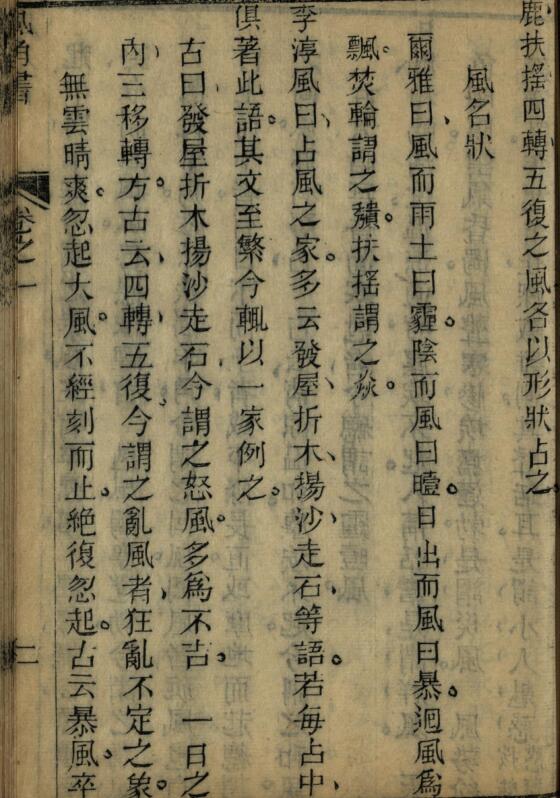 鹿扶搖四轉五復之風各以形狀占之
風名狀
爾雅曰、風而雨土曰霾。陰而風曰曀。日出而風曰暴。迴風爲
飄。焚輪謂之穨。扶搖謂之猋。
李淳風曰、占風之家。多云發屋、折木、揚沙、走石等語。若每占中、
俱著此語。其文至繁今輒以一家例之。
古曰發屋折木揚沙走石今謂之怒風。多爲不吉。 一日之
內、三移轉方。古云四轉、五復。今謂之亂風。者、狂亂不定之象。
無雲晴爽。忽起大風。不經刻而止。絕復忽起。古云暴風。卒
風角書 卷之一 二